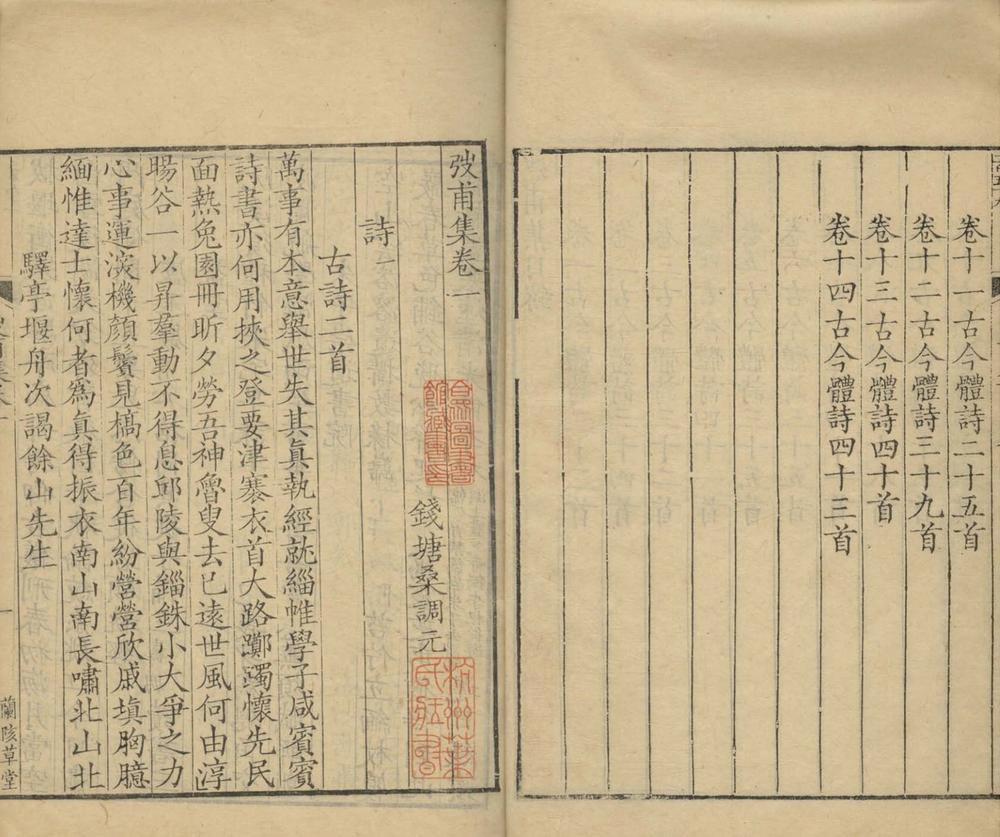 卷十一古今體詩二十五首
卷十二古今體詩三十九首
卷十三古今體詩四十首
卷十四古今體詩四十三首
弢甫集卷一
錢塘桑調元
詩一
古詩二首
萬事有本意舉世失其真執經就緇帷學子咸賓賓
詩書亦何用挾之登要津褰衣首大路躑躅懷先民
面熱兔園冊昕夕勞吾神魯叟去已遠世風何由淳
暘谷一以昇羣動不得息邱陵與錙銖小大爭之力
心事運淡機顏鬢見槁色百年紛營營欣戚填胸臆
緬惟達士懷何者爲真得振衣南山南長嘯北山北
驛亭堰舟次謁餘山先生
蘭陔草堂
杭州葉氏藏書